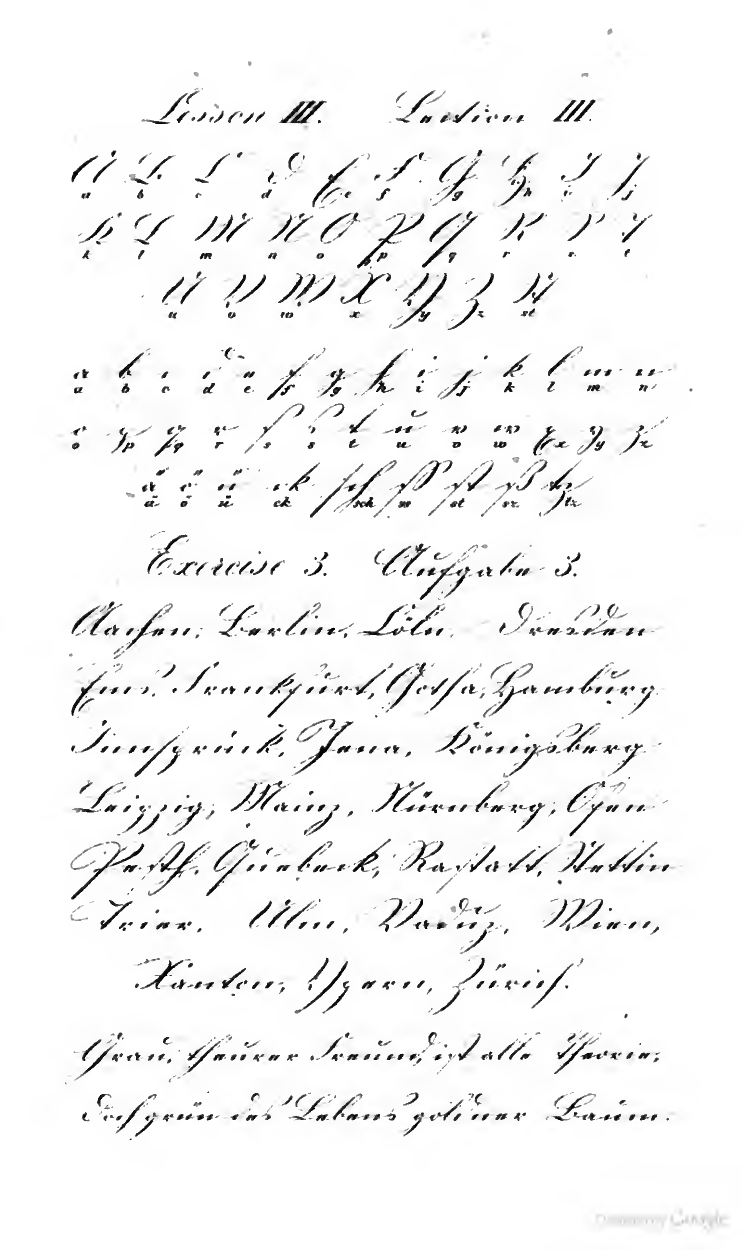 Lesson III. Lection III.
A B C D E F G H I J
a b c d e f g h i j
K L M N O P Q R S T
k l m n o p q r s t
U V W X Y Z St
u v w x y z st
a b c d e f g h i j k l m n
a b c d e f g h i j k l m n
o p q r s s t u v w x y z
o p q r s s t u v w x y z
ä ö ü ck sch ss st sz tz
ä ö ü ck sch ss st sz tz
Exercise 3. Aufgabe 3.
Aachen, Berlin, Cöln, Dresden
Ems, Frankfurt, Gotha, Hamburg
Innspruck, Jena, Königsberg
Leipzig, Mainz, Nürnberg, Ofen
Pesth, Quebeck, Rastatt, Stettin
Trier, Ulm, Vaduz, Wien,
Xanton, Ypern, Zürich.
Grau, theurer Freund, ist alle Theorie,
doch grün des Lebens goldner Baum.
Google